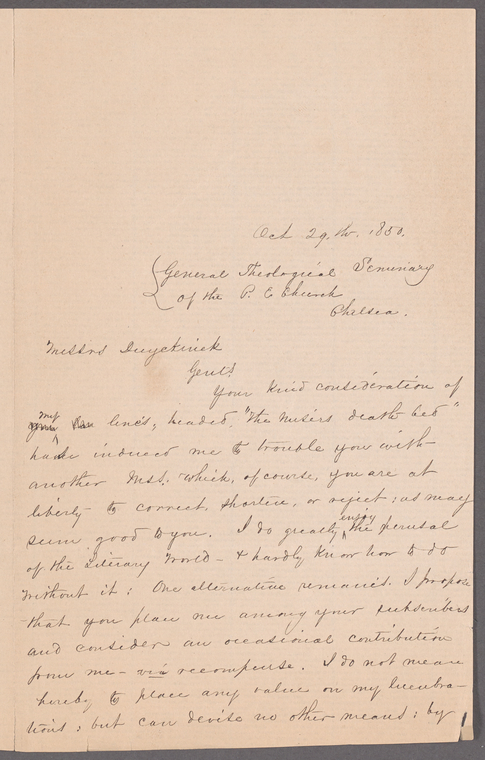 Oct 29.th. 1850.
General Theological Seminary
of the P. E Church
Chelsea.
Messrs Duyckinck
Gents
Your kind consideration of
my
lines, headed, "The Miser's death-bed"
have induced me to trouble you with
another Mss. which, of course, you are at
liberty to correct, shorten, or reject; as may
seem good to you. I do greatly enjoy the perusal
of the Literary World - & hardly know how to do
without it: One alternative remains. I propose
that you place me among your subscribers
and consider an occasional contribution
from me - via recompense. I do not mean
hereby to place any value on my lucubra-
tions; but can devise no other means; by